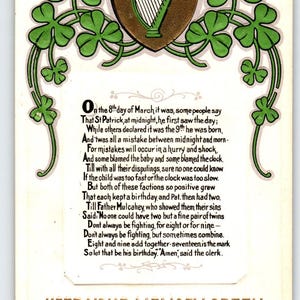 On the 8th day of March it was, some people say
That St Patrick, at midnight, he first saw the day;
While others declared it was the 9th he was born,
And twas all a mistake between midnight and morn-
For mistakes will occur in a hurry and shock,
And some blamed the baby and some blamed the clock.
Till with all their disputings, sure no one could know
If the child was too fast or the clock was too slow.
But both of these factions so positive grew
That each kept a birthday and Pat. then had two,
Till Father Mulcahey who showed them their sins
Said "No one could have two but a fine pair of twins
Dont always be fighting, for eight or for nine-
Dont always be fighting, but sometimes combine.
Eight and nine add together - seventeen is the mark
So let that be his birthday" "Amen", said the clerk.